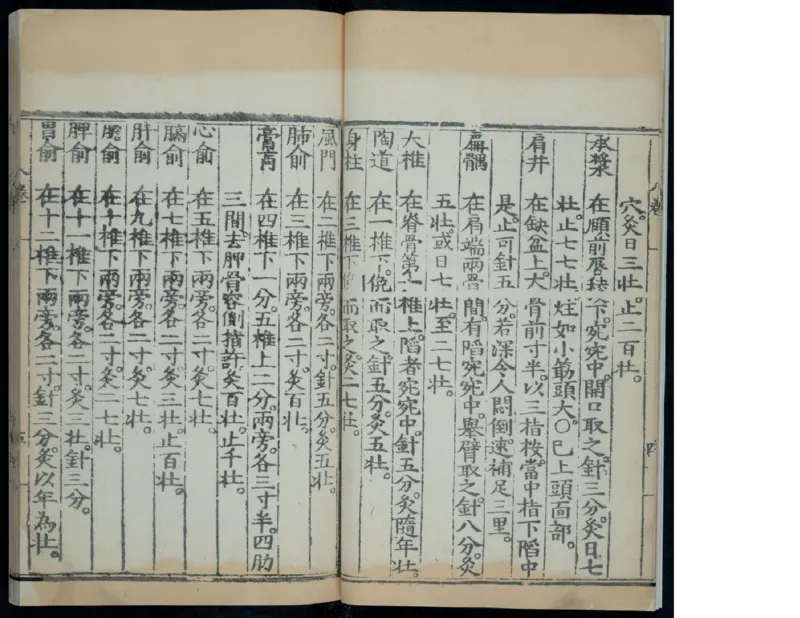 穴。灸日三壯。止二百壯。
承漿 在頤前唇稜下。宛宛中。開口取之。針三分。灸日七
壯。止七七壯。炷如小筯頭大〇已上頭面部。
肩井 在缺盆上大骨前寸半。以三指按。當中指下陷中
是。止可針五分。若深令人悶倒。速補足三里。
肩髃 在肩端兩骨間。有陷宛宛中。舉臂取之。針八分。灸
五壯。或日七壯。至二七壯。
大椎 在脊骨第一椎上。陷者宛宛中。針五分。灸隨年壯。
陶道 在一椎下。俛而取之。針五分。灸五壯。
身柱 在三椎下。俛而取之。灸二七壯。
風門 在二椎下兩旁。各二寸。針五分。灸五壯。
肺俞 在三椎下兩旁。各二寸。灸百壯。
膏肓 在四椎下一分。五椎上二分。兩旁。各三寸半。四肋
三間。去胛骨容側指許。灸百壯。止千壯。
心俞 在五椎下兩旁。各二寸。灸七壯。
膈俞 在七椎下兩旁。各二寸。灸三壯。止百壯。
肝俞 在九椎下兩旁。各二寸。灸七壯。
膽俞 在十椎下兩旁。各二寸。灸二七壯。
脾俞 在十一椎下兩旁。各二寸。灸三壯。針三分。
胃俞 在十二椎下兩旁。各二寸。針三分。灸以年為壯。
八卷